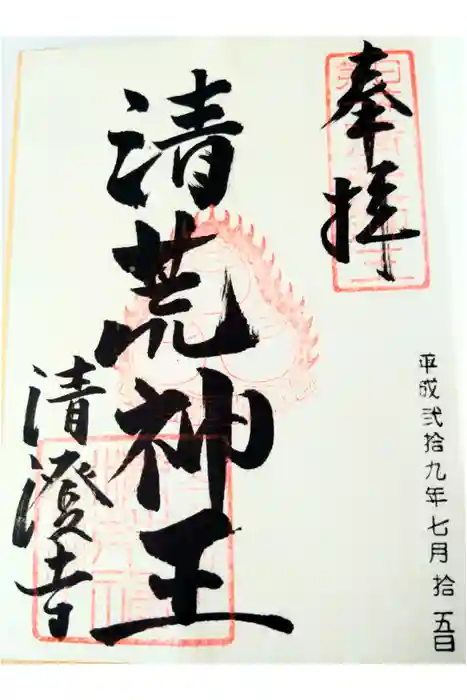 奉拝
平成弐拾九年七月拾五日
清荒神王
清澄寺